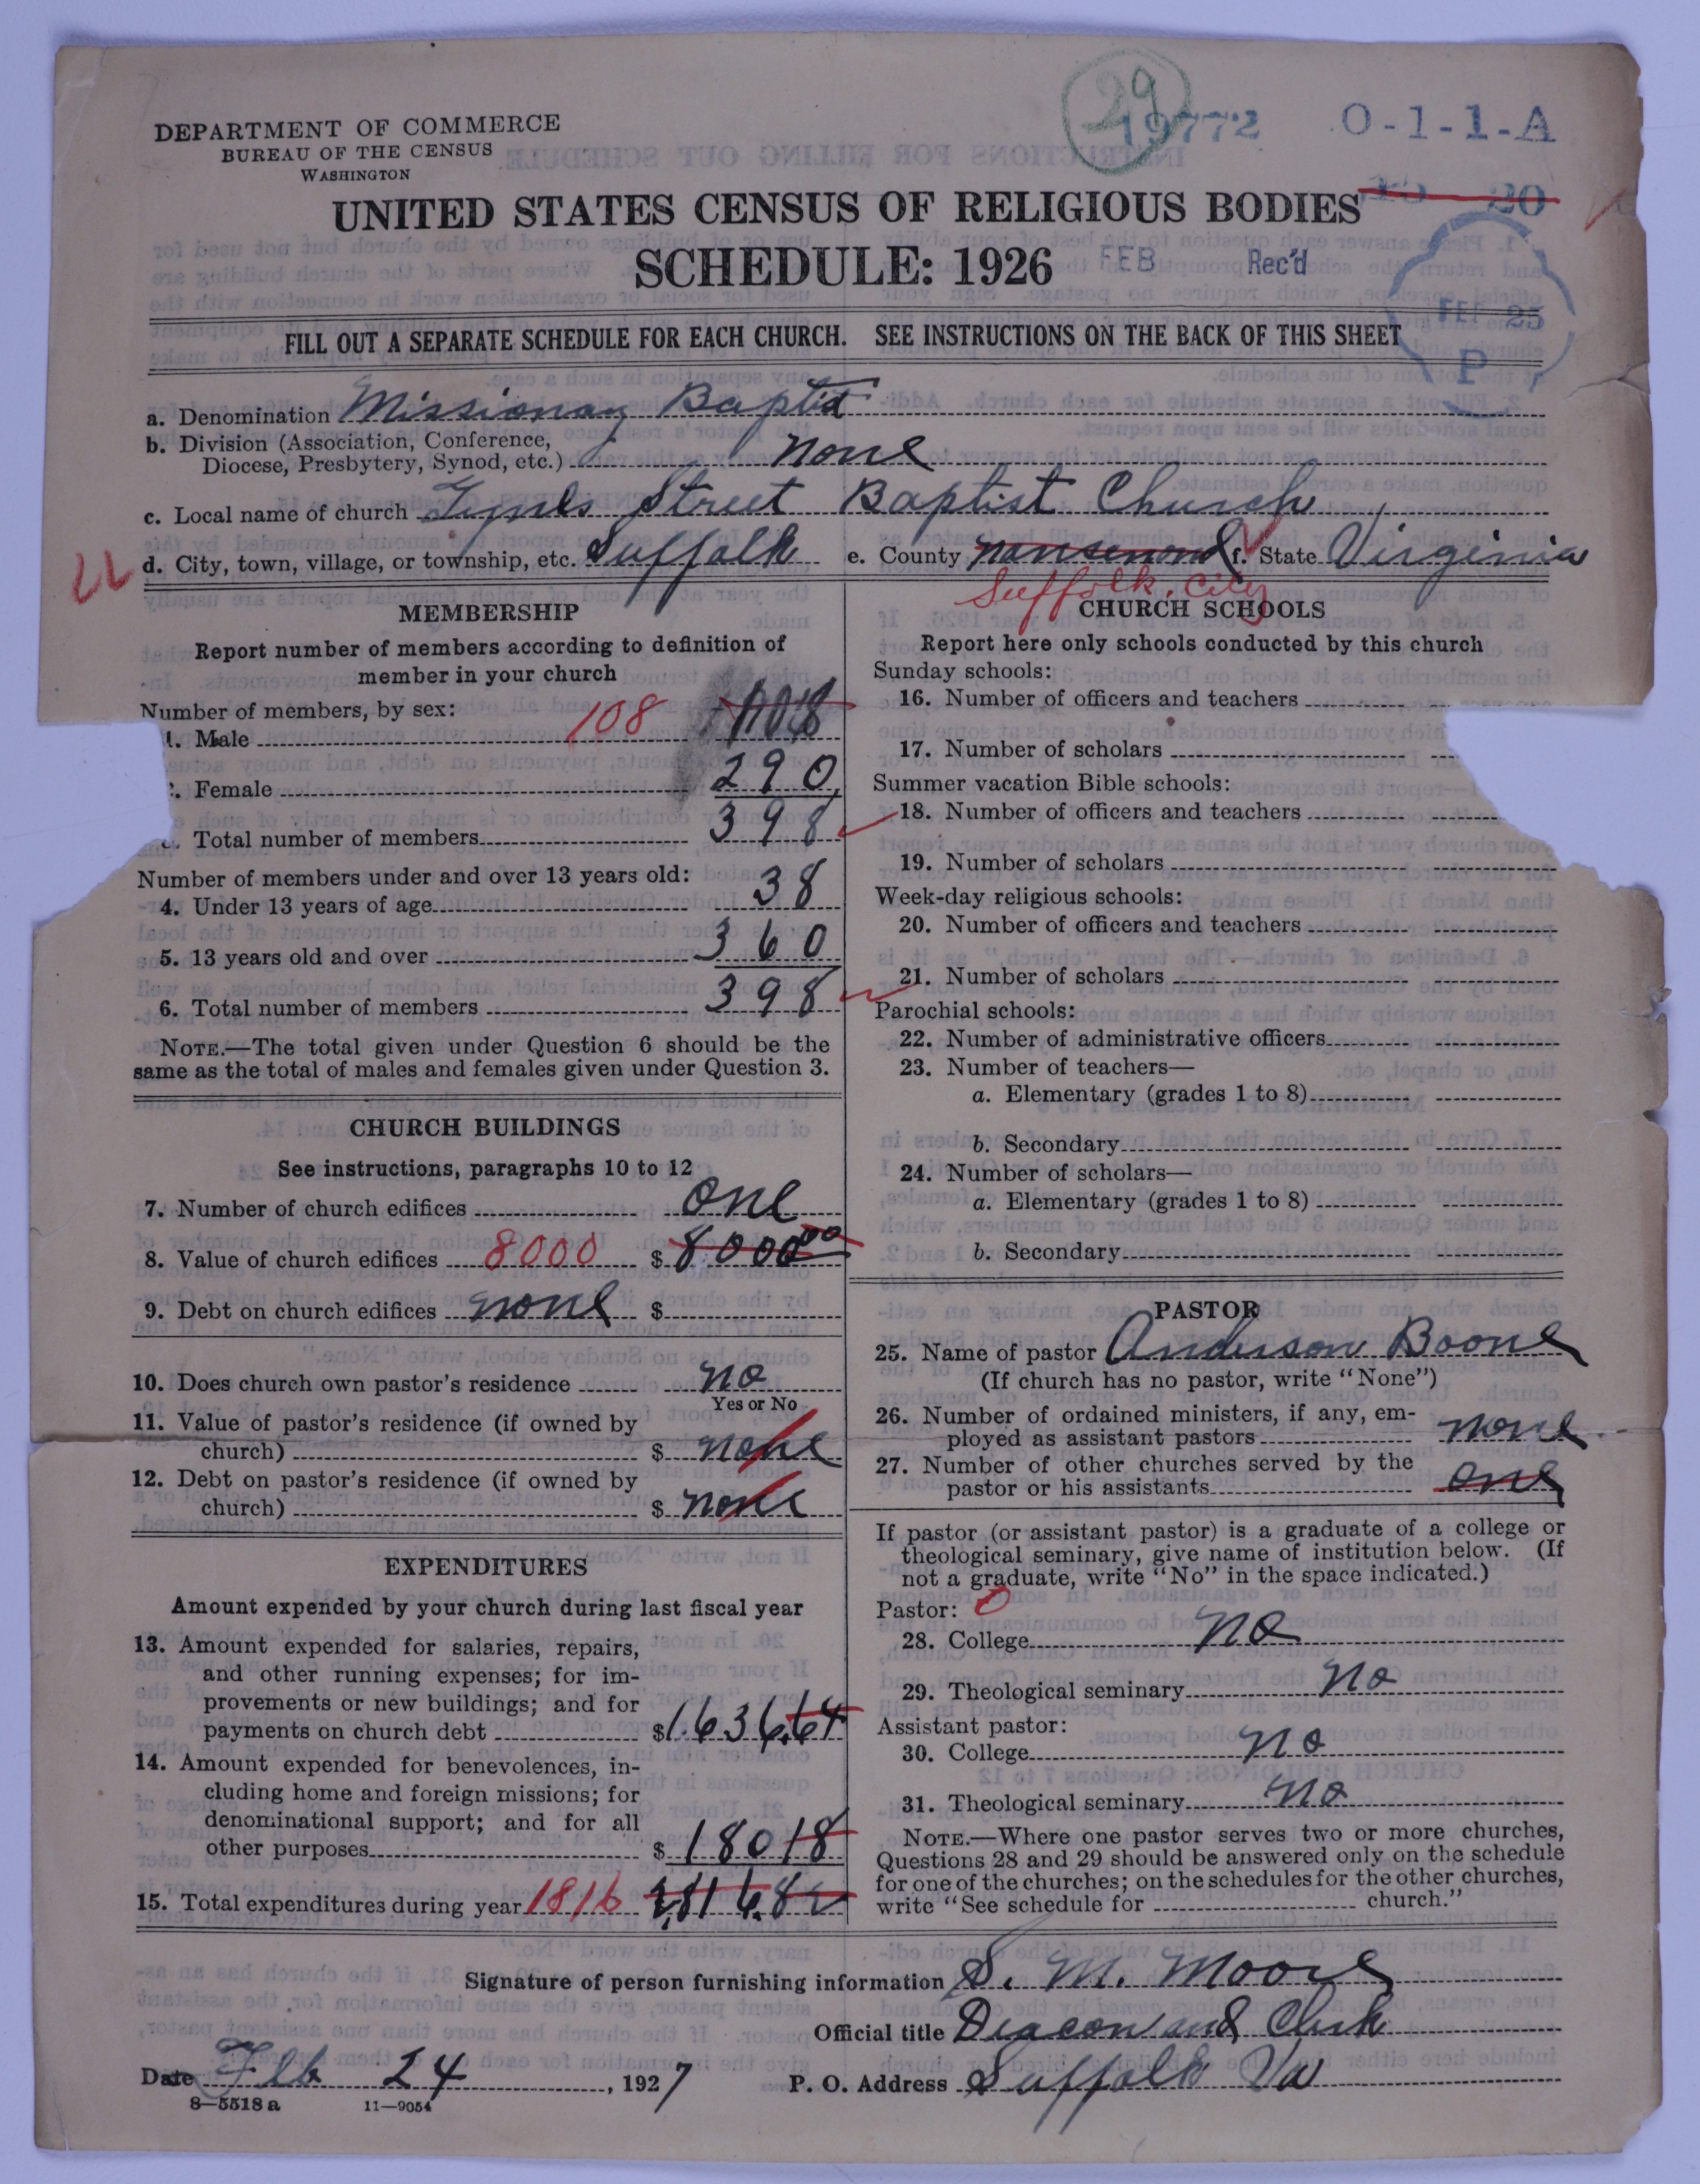 29
19772 O-1-1-A
DEPARTMENT OF COMMERCE
BUREAU OF THE CENSUS
WASHINGTON
20
UNITED STATES CENSUS OF RELIGIOUS BODIES
SCHEDULE: 1926
FEB Rec'd
FEB 25
P
FILL OUT A SEPARATE SCHEDULE FOR EACH CHURCH. SEE INSTRUCTIONS ON THE BACK OF THIS SHEET
a. Denomination Missionary Baptist
b. Division (Association, Conference,
Diocese, Presbytery, Synod, etc.) none
c. Local name of church Tynes Street Baptist Church
d. City, town, village, or township, etc. Suffolk e. County Nansemond f. State Virginia
Suffolk City
MEMBERSHIP
Report number of members according to definition of
member in your church
Number of members, by sex:
1. Male 108 108
Female 290
Total number of members 398
Number of members under and over 13 years old:
4. Under 13 years of age 38
5. 13 years old and over 360
6. Total number of members 398
NOTE.—The total given under Question 6 should be the
same as the total of males and females given under Question 3.
CHURCH BUILDINGS
See instructions, paragraphs 10 to 12
7. Number of church edifices one
8. Value of church edifices 8000 $ 8000.00
9. Debt on church edifices none $
10. Does church own pastor's residence no
Yes or No
11. Value of pastor's residence (if owned by
church) $ none
12. Debt on pastor's residence (if owned by
church) $ none
EXPENDITURES
Amount expended by your church during last fiscal year
13. Amount expended for salaries, repairs,
and other running expenses; for im-
provements or new buildings; and for
payments on church debt $ 1,636.64
14. Amount expended for benevolences, in-
cluding home and foreign missions; for
denominational support; and for all
other purposes $ 180 18
15. Total expenditures during year 1816 1,816.82
CHURCH SCHOOLS
Report here only schools conducted by this church
Sunday schools:
16. Number of officers and teachers
17. Number of scholars
Summer vacation Bible schools:
18. Number of officers and teachers
19. Number of scholars
Week-day religious schools:
20. Number of officers and teachers
21. Number of scholars
Parochial schools:
22. Number of administrative officers
23. Number of teachers—
a. Elementary (grades 1 to 8)
b. Secondary
24. Number of scholars—
a. Elementary (grades 1 to 8)
b. Secondary
PASTOR
25. Name of pastor Anderson Boone
(If church has no pastor, write "None")
26. Number of ordained ministers, if any, em-
ployed as assistant pastors none
27. Number of other churches served by the
pastor or his assistants one
If pastor (or assistant pastor) is a graduate of a college or
theological seminary, give name of institution below. (If
not a graduate, write "No" in the space indicated.)
Pastor: 0
28. College no
29. Theological seminary no
Assistant pastor:
30. College no
31. Theological seminary no
NOTE.—Where one pastor serves two or more churches,
Questions 28 and 29 should be answered only on the schedule
for one of the churches; on the schedules for the other churches,
write "See schedule for church."
Signature of person furnishing information S. M. Moore
Official title Deacon and Clerk
Date Feb 24, 1927 P. O. Address Suffolk Va
8—5518 a 11—9054